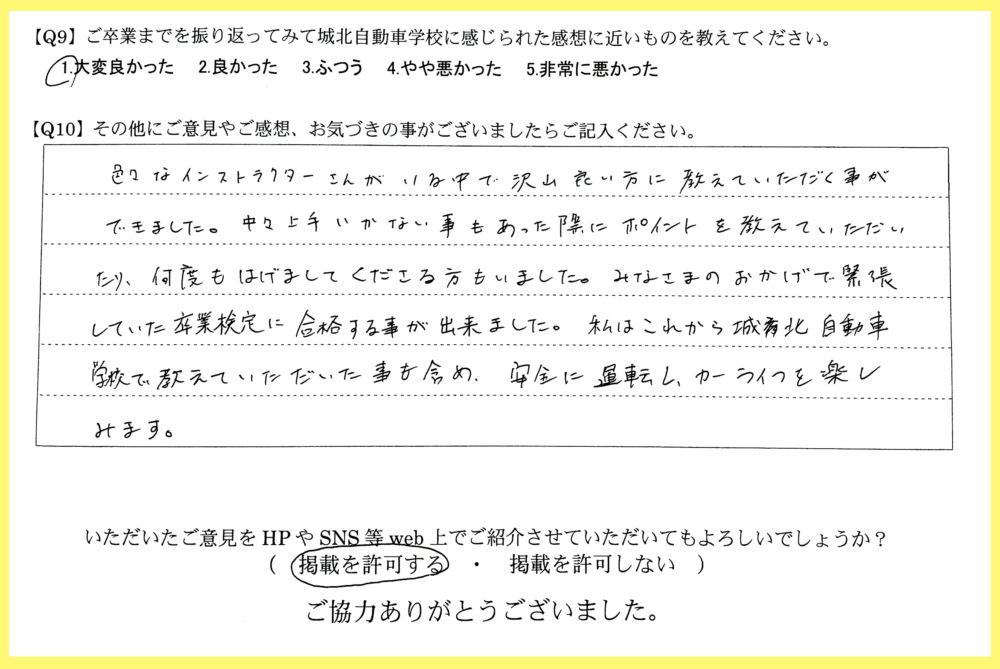 【Q9】ご卒業までを振り返ってみて城北自動車学校に感じられた感想に近いものを教えてください。
1.大変良かった 2.良かった 3.ふつう 4.やや悪かった 5.非常に悪かった
【Q10】その他にご意見やご感想、お気づきの事がございましたらご記入ください。
色々なインストラクターさんがいる中で沢山良い方に教えていただく事が
できました。中々上手いかない事もあった際にポイントを教えていただい
たり、何度もはげましてくださる方もいました。みなさまのおかげで緊張
していた卒業検定に合格する事が出来ました。私はこれから城北自動車
学校で教えていただいた事も含め、安全に運転し、カーライフを楽し
みます。
いただいたご意見をHPやSNS等web上でご紹介させていただいてもよろしいでしょうか？
( 掲載を許可する ・ 掲載を許可しない )
ご協力ありがとうございました。